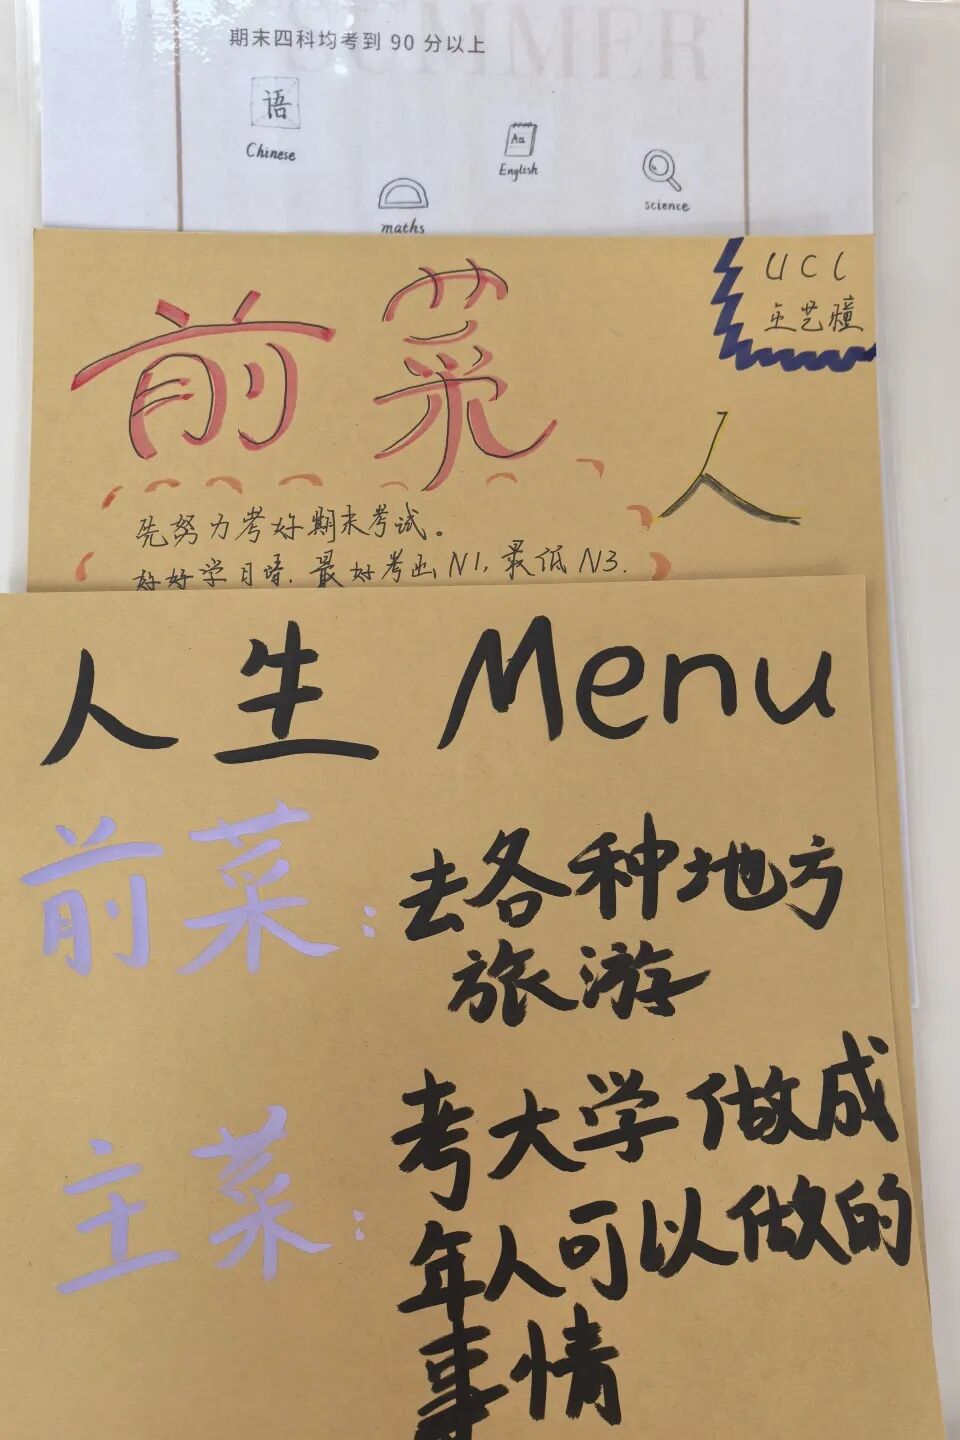 SUMMER
期末四科均考到 90 分以上
语
Chinese
Aa
English
maths
science
前菜
UCL
人
先努力考好期末考试。
好好学日语,最好考出N1,最低N3.
人生 Menu
前菜:去各种地方
旅游
主菜:考大学做成
年人可以做的
事情